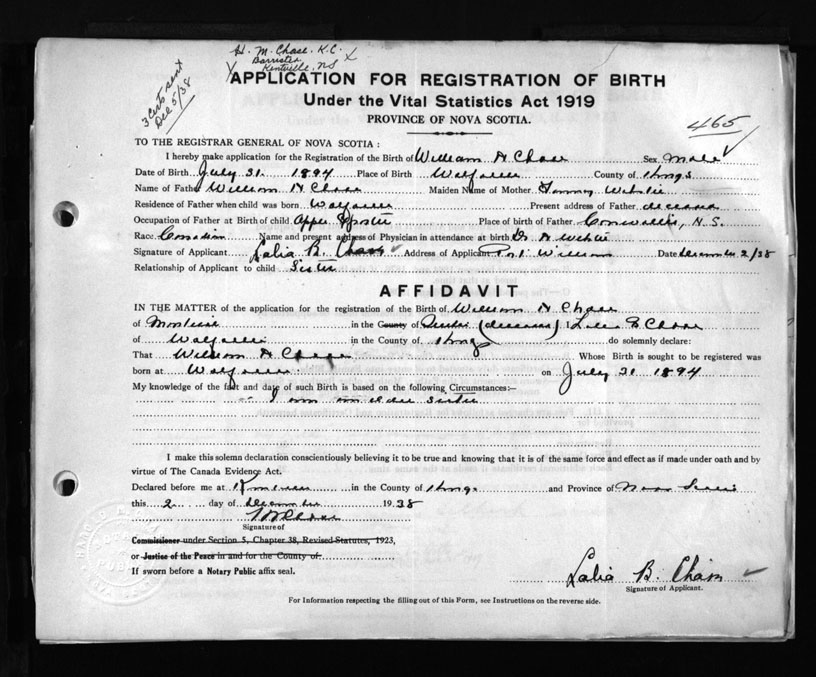 H. M. Chase. K.C.
Barrister
Kentville, NS
3 Certs sent
Dec 5/38
APPLICATION FOR REGISTRATION OF BIRTH
Under the Vital Statistics Act 1919
PROVINCE OF NOVA SCOTIA.
465
TO THE REGISTRAR GENERAL OF NOVA SCOTIA :
I hereby make application for the Registration of the Birth of William H Chase Sex Male
Date of Birth July 31. 1894 Place of Birth Wolfville County of Kings
Name of Father William H Chase Maiden Name of Mother Webster
Residence of Father when child was born Wolfville Present address of Father deceased
Occupation of Father at Birth of child Apple Place of Birth of Father Cornwallis, N.S.
Race Canadian Name and present address of Physician in attendance at birth Dr
Signature of Applicant Lalia B. Chase Address of Applicant Port Williams Date December 2/38
Relationship of Applicant to child Sister
AFFIDAVIT
IN THE MATTER of the application for the registration of the Birth of William H Chase
of Montreal in the County of (deceased) I Chase
of Wolfville in the County of Kings do solemnly declare:
That William H Chase Whose Birth is sought to be registered was
born at Wolfville on July 31 1894
My knowledge of the fact and date of such Birth is based on the following Circumstances:—
I am an older sister
I make this solemn declaration conscientiously believing it to be true and knowing that it is of the same force and effect as if made under oath and by
virtue of The Canada Evidence Act.
Declared before me at in the County of Kings and Province of Nova Scotia
this 2 day of December 1938
Signature of
Commissioner under Section 5, Chapter 38, Revised Statutes, 1923,
or Justice of the Peace in and for the County of
If sworn before a Notary Public affix seal.
Lalia B. Chase
Signature of Applicant.
For Information respecting the filling out of this Form, see Instructions on the reverse side.